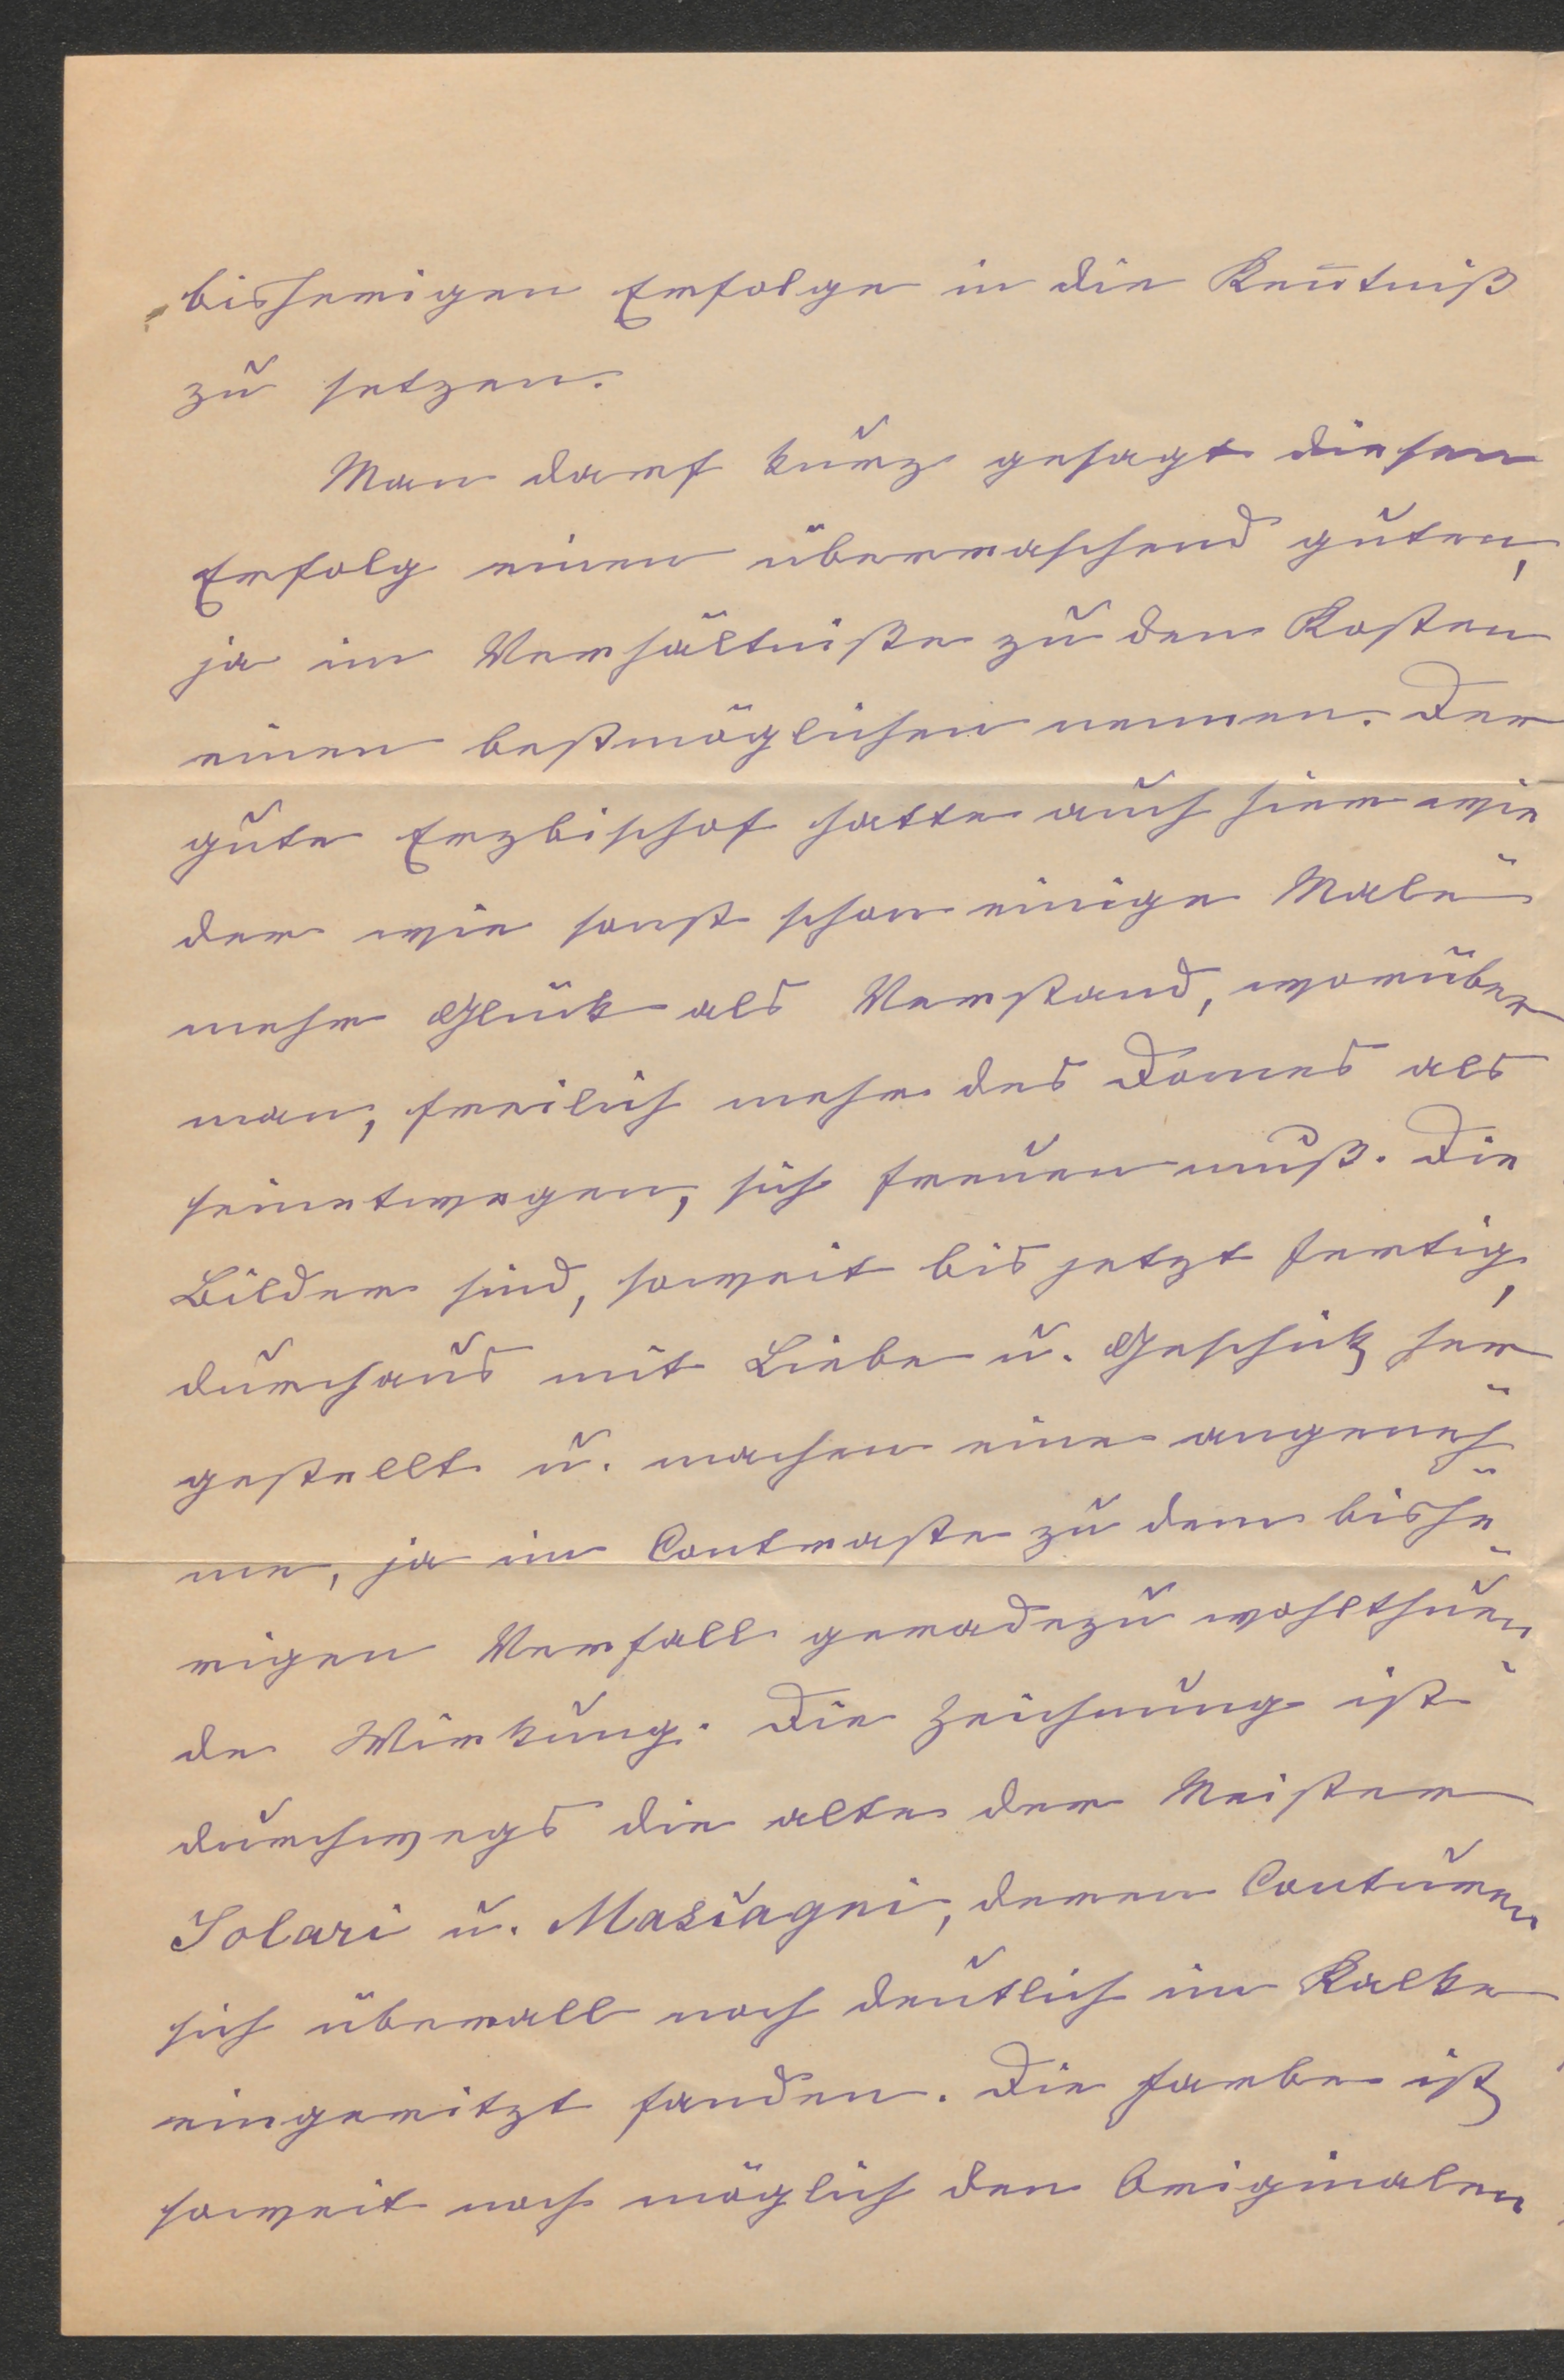 bisherigen Erfolge in die Keñtniß
zu setzen.
Man darf kurz gesagt diesen
Erfolg einen überraschend guten,
ja im Verhältniße zu den Kosten
einen bestmöglichen nennen. Der
gute Erzbischof hatte auch hier wie
der wie sonst schon einige Male
mehr Glück als Verstand, worüber
man, freilich mehr des Domes als
seinetwegen, sich freuen muß. Die
Bilder sind, soweit bis jetzt fertig,
durchaus mit Liebe u. Geschick her
gestellt u. machen eine angeneh¨
me, ja im Contraste zu dem bishe¨
rigen Verfall geradezu wohlthuen
de Wirkung. Die Zeichnung ist
durchwegs die alte der Meister
Solari u. Mascagni, deren Conturen
sich überall noch deutlich im Kalke
eingeritzt fanden. Die Farbe ist
soweit noch möglich den Originalen